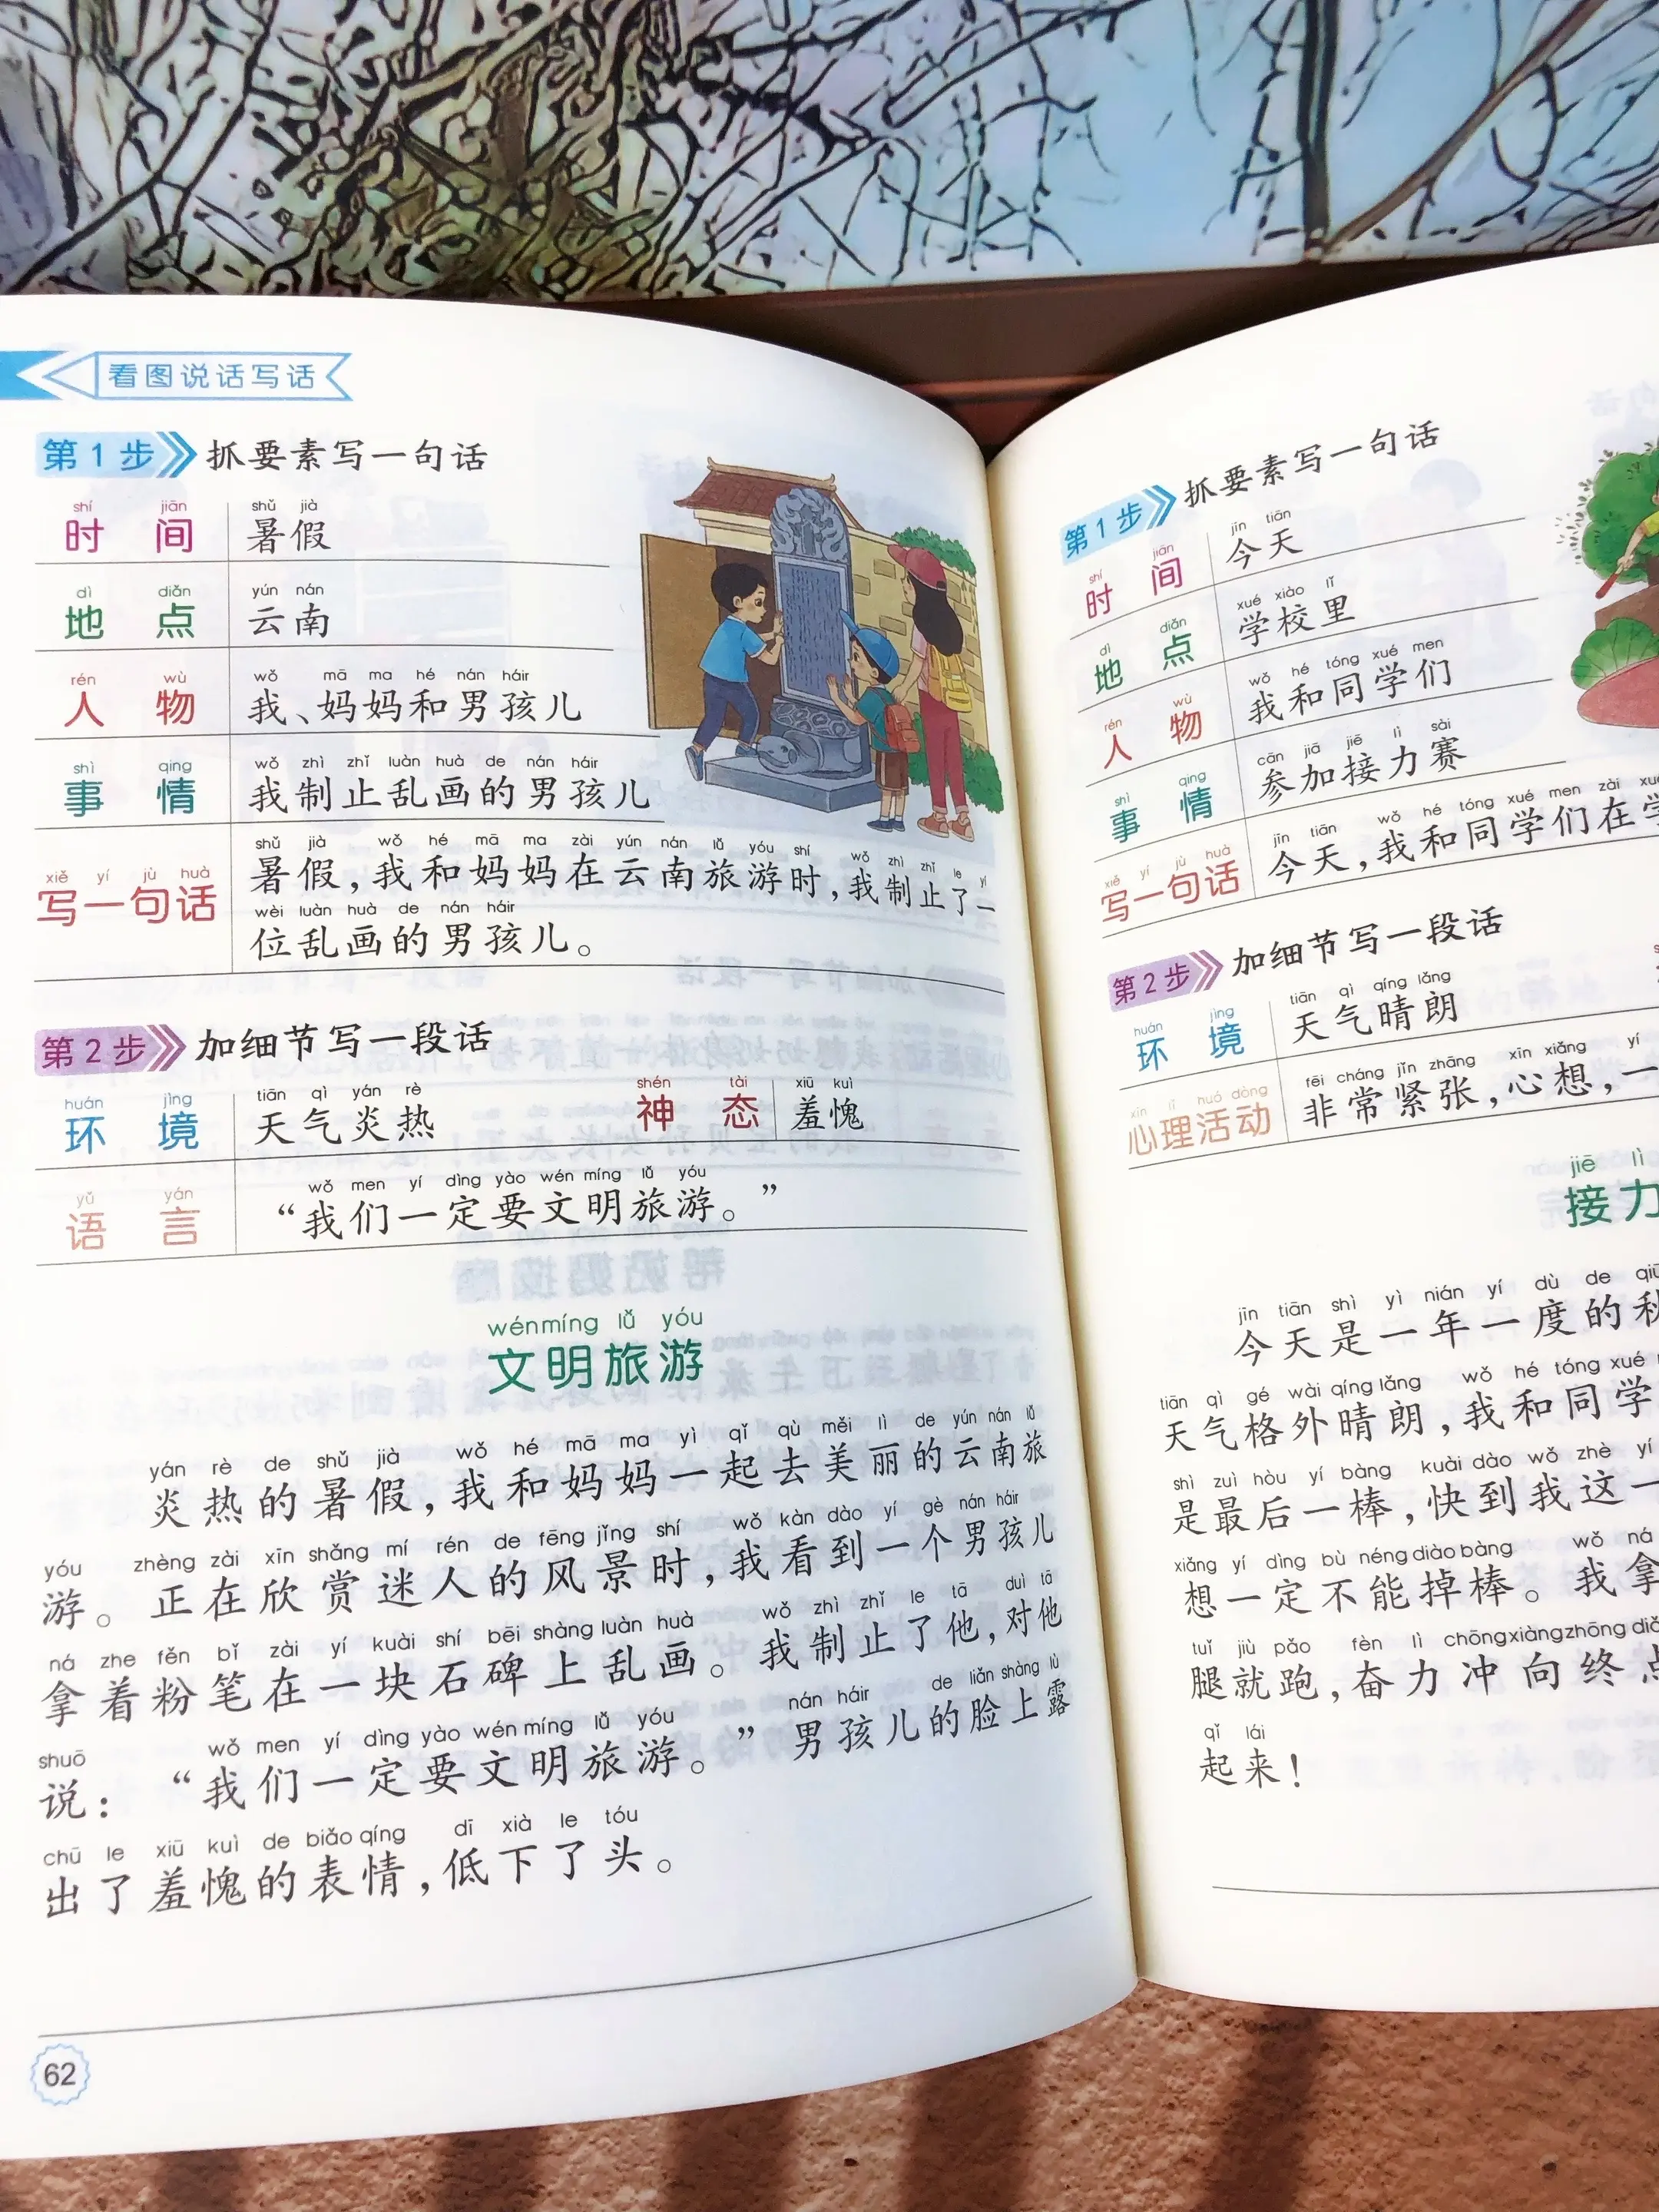 看图说话写话
第1步 抓要素写一句话
shí jiān shǔ jià
时间 暑假
dì diǎn yún nán
地点 云南
rén wù wǒ mā ma hé nán háir
人物 我、妈妈和男孩儿
shì qing wǒ zhì zhǐ luàn huà de nán háir
事情 我制止乱画的男孩儿
shǔ jià wǒ hé mā ma zài yún nán lǚ yóu shí wǒ zhì zhǐ le yí
xiě yí jù huà
写一句话 暑假，我和妈妈在云南旅游时，我制止了一
wèi luàn huà de nán háir
位乱画的男孩儿。
第2步 加细节写一段话
huán jìng tiān qì yán rè shén tài xiū kuì
环境 天气炎热 神态 羞愧
yǔ yán wǒ men yí dìng yào wén míng lǚ yóu
语言 “我们一定要文明旅游。”
wénmíng lǚ yóu
文明旅游
yán rè de shǔ jià wǒ hé mā ma yì qǐ qù měi lì de yún nán lǚ
炎热的暑假，我和妈妈一起去美丽的云南旅
yóu zhèng zài xīn shǎng mí rén de fēng jǐng shí wǒ kàn dào yí gè nán háir
游。正在欣赏迷人的风景时，我看到一个男孩儿
ná zhe fěn bǐ zài yí kuài shí bēi shàng luàn huà wǒ zhì zhǐ le tā duì tā
拿着粉笔在一块石碑上乱画。我制止了他，对他
shuō wǒ men yí dìng yào wén míng lǚ yóu nán háir de liǎn shàng lù
说：“我们一定要文明旅游。”男孩儿的脸上露
chū le xiū kuì de biǎo qíng dī xià le tóu
出了羞愧的表情，低下了头。
62
第1步 抓要素写一句话
shí jiān jīn tiān
时间 今天
dì diǎn xué xiào lǐ
地点 学校里
rén wù wǒ hé tóng xué men
人物 我和同学们
shì qing cān jiā jiē lì sài
事情 参加接力赛
xiě yí jù huà jīn tiān wǒ hé tóng xué men zài
写一句话 今天，我和同学们在
第2步 加细节写一段话
huán jìng tiān qì qíng lǎng
环境 天气晴朗
xīn lǐ huó dòng fēi cháng jǐn zhāng xīn xiǎng yí
心理活动 非常紧张，心想，一
jiē lì
接力
jīn tiān shì yì nián yí dù de
今天是一年一度的
tiān qì gé wài qíng lǎng wǒ hé tóng xué
天气格外晴朗，我和同学
shì zuì hòu yí bàng kuài dào wǒ zhè yí
是最后一棒，快到我这一
xiǎng yí dìng bù néng diào bàng wǒ ná
想一定不能掉棒。我拿
tuǐ jiù pǎo fèn lì chōng xiàng zhōng
腿就跑，奋力冲向终点
qǐ lái
起来！